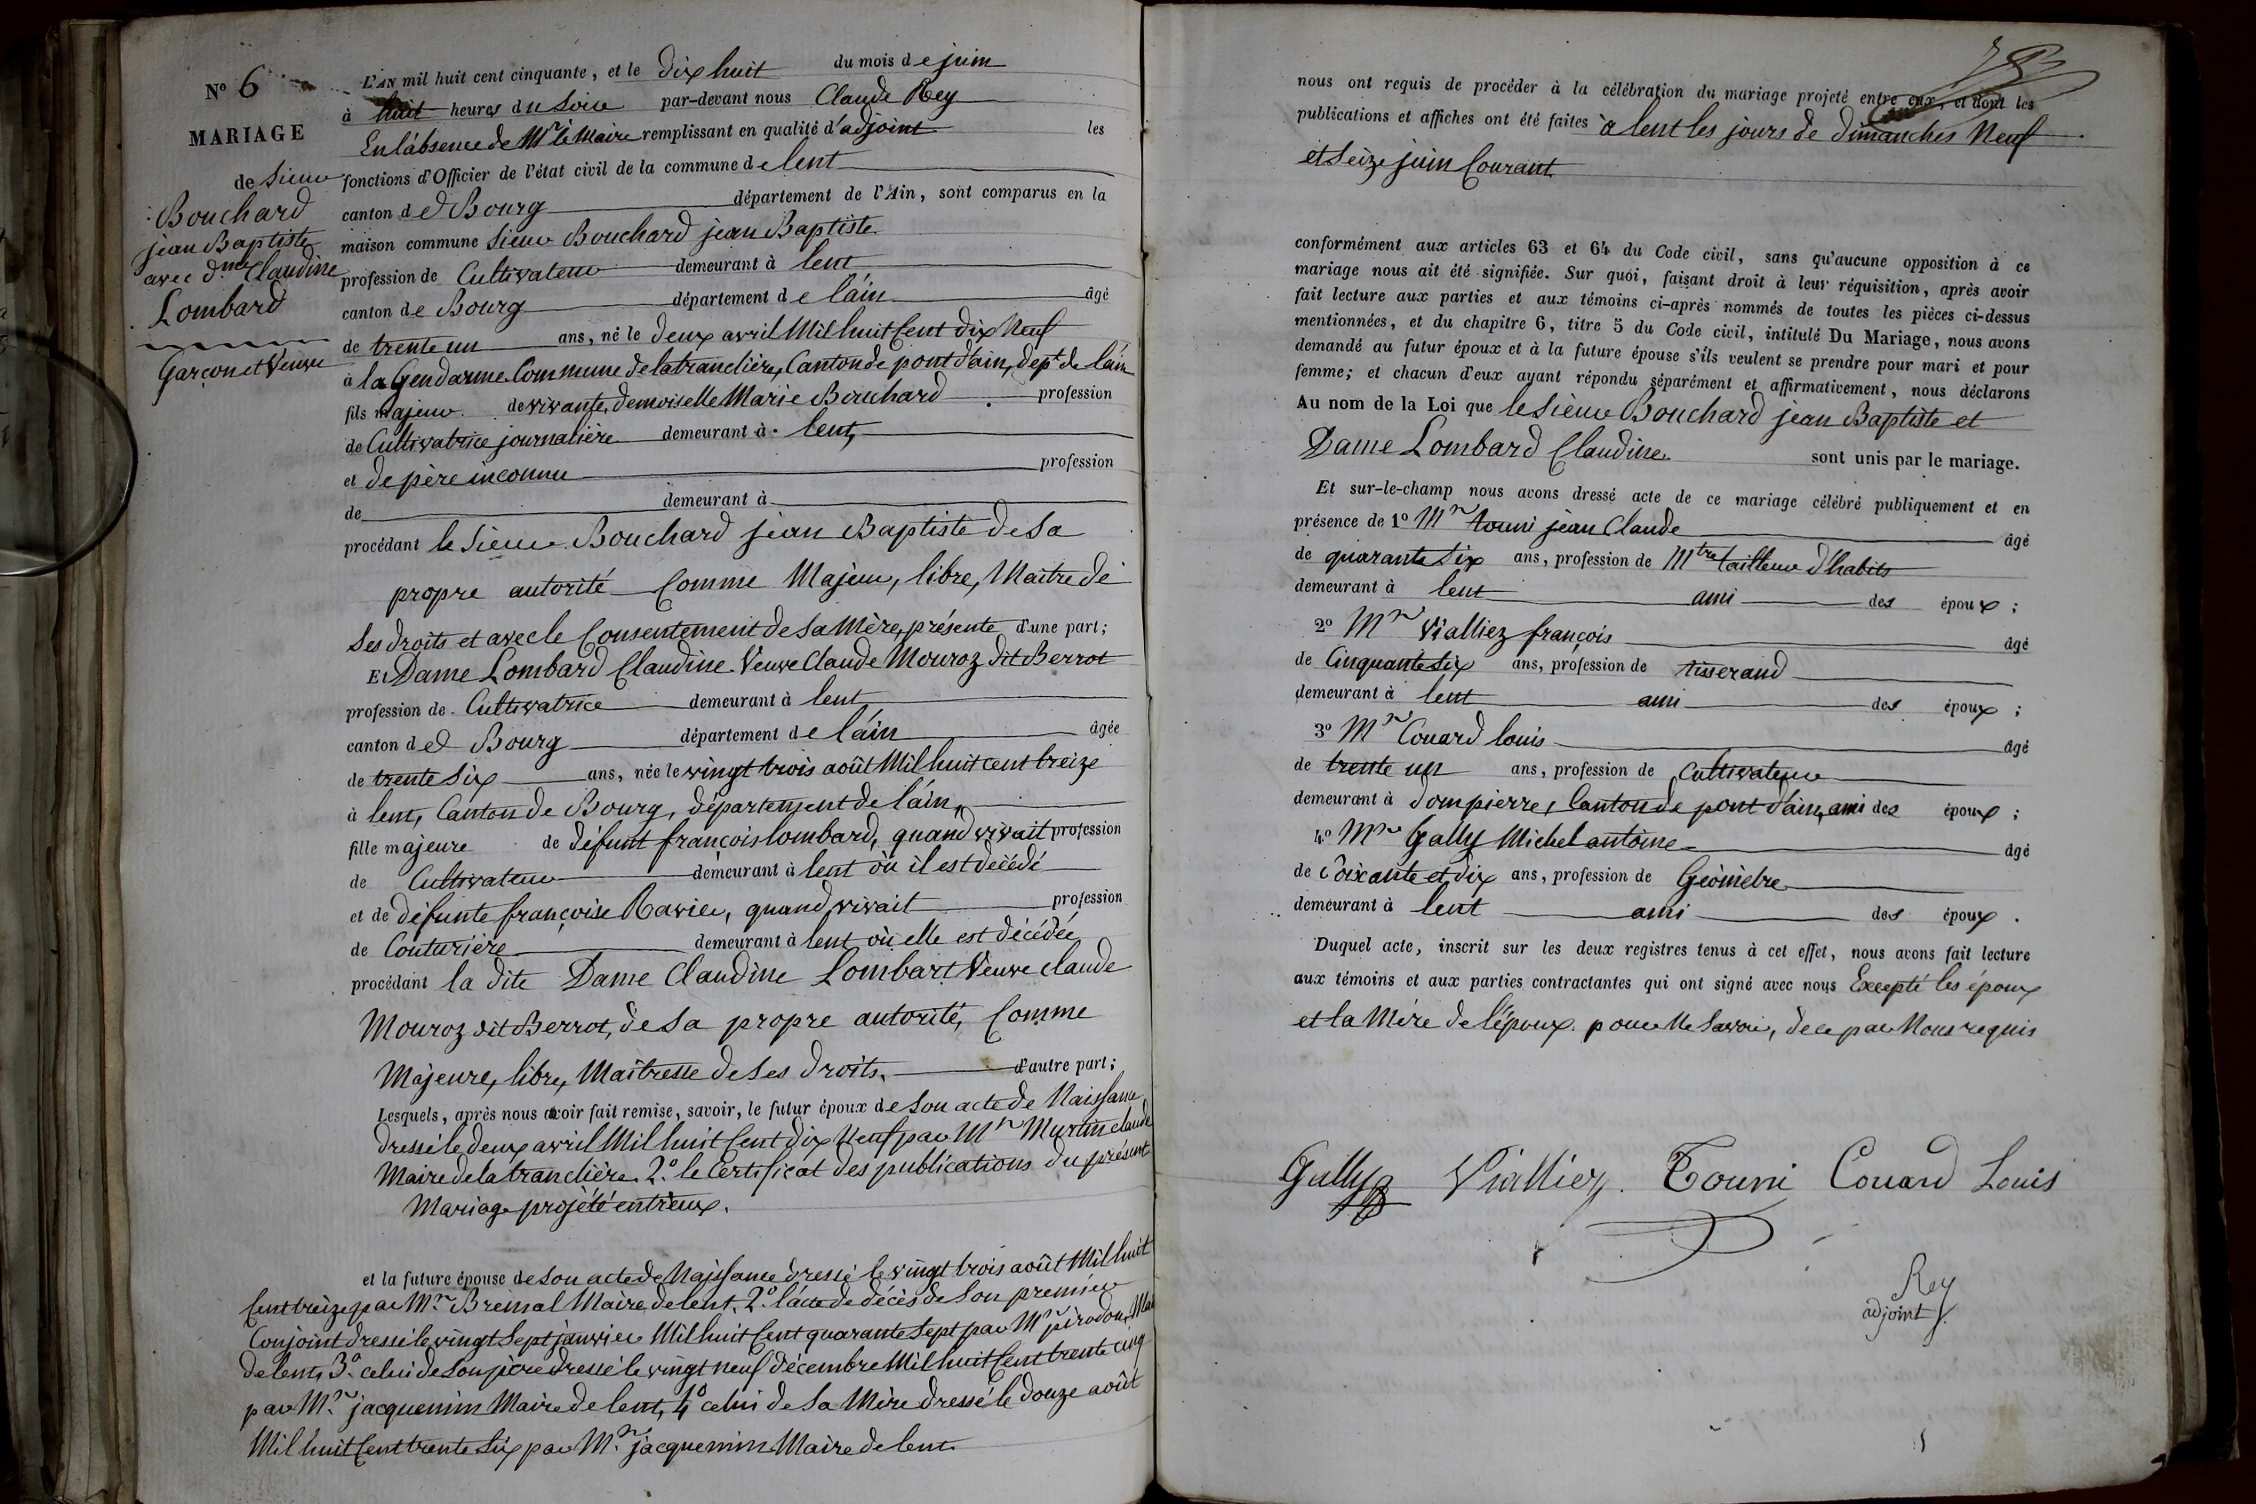 N° 6
MARIAGE
de Sieur
Bouchard
jean Baptiste
avec d.me Claudine
Lombard
Garçon et Veuve
L'AN mil huit cent cinquante, et le dix huit du mois de juin
à huit heures du Soir par-devant nous Claude Rey
En l'absence de Mr le Maire remplissant en qualité d'adjoint les
fonctions d'Officier de l'état civil de la commune de lent
canton de Bourg département de l'Ain, sont comparus en la
maison commune Sieur Bouchard jean Baptiste
profession de Cultivateur demeurant à lent
canton de Bourg département de l'ain âgé
de trente un ans, né le deux avril Mil huit Cent dix Neuf
à la Gendarme Commune de latranclière, Canton de pont d'ain, dept de l'ain
fils majeur de vivante, demoiselle Marie Bouchard profession
de Cultivatrice journalière demeurant à lent,
et de père inconnu profession
de demeurant à
procédant le Sieur Bouchard jean Baptiste de Sa
propre autorité Comme Majeur, libre, Maître de
Ses droits et avec le Consentement de Sa Mère, présente d'une part;
Et Dame Lombard Claudine Veuve Claude Mouroz dit Berrot
profession de Cultivatrice demeurant à lent
canton de Bourg département de l'ain âgée
de trente Six ans, née le vingt trois août Mil huit cent treize
à lent, Canton de Bourg, département de l'ain,
fille majeure de défunt françois lombard, quand vivait profession
de Cultivateur demeurant à lent où il est décédé
et de défunte françoise Ravier, quand vivait profession
de Couturière demeurant à lent où elle est décédée
procédant la dite Dame Claudine Lombart Veuve claude
Mouroz dit Berrot, de Sa propre autorité, Comme
Majeure, libre, Maîtresse de Ses droits. d'autre part;
Lesquels, après nous avoir fait remise, savoir, le futur époux de Son acte de Naissance
dressé le deux avril Mil huit Cent dix Neuf par Mr Murtin claude
Maire de la tranclière. 2.° le Certificat des publications du présent
Mariage projété entr'eux.
et la future épouse de Son acte de Naissance dressé le vingt trois août Mil huit
Cent treize par Mr Bremal Maire de lent. 2.° l'acte de décès de Son premier
Conjoint dressé le vingt Sept janvier Mil huit Cent quarante Sept par Mr pirodon, Mai
de lent, 3.° celui de Son père dressé le vingt neuf décembre Mil huit Cent trente cinq
par Mr jacquemin Maire de lent, 4° celui de Sa Mère dressé le douze août
Mil huit Cent trente Six par Mr jacquemin Maire de lent
nous ont requis de procéder à la célébration du mariage projeté entre eux, et dont les
publications et affiches ont été faites à lent les jours de dimanches Neuf
et Seize juin Courant
conformément aux articles 63 et 64 du Code civil, sans qu'aucune opposition à ce
mariage nous ait été signifiée. Sur quoi, faisant droit à leur réquisition, après avoir
fait lecture aux parties et aux témoins ci-après nommés de toutes les pièces ci-dessus
mentionnées, et du chapitre 6, titre 5 du Code civil, intitulé Du Mariage, nous avons
demandé au futur époux et à la future épouse s'ils veulent se prendre pour mari et pour
femme; et chacun d'eux ayant répondu séparément et affirmativement, nous déclarons
Au nom de la Loi que le Sieur Bouchard jean Baptiste et
Dame Lombard Claudine sont unis par le mariage.
Et sur-le-champ nous avons dressé acte de ce mariage célébré publiquement et en
présence de 1° Mr touni jean Claude âgé
de quarante Six ans, profession de Mtre tailleur d'habits
demeurant à lent ami des époux;
2° Mr Vialliez françois âgé
de Cinquante Six ans, profession de tisserand
demeurant à lent ami des époux;
3° Mr Couard louis âgé
de trente un ans, profession de Cultivateur
demeurant à dompierre, Canton de pont d'ain, ami des époux;
4° Mr Gally Michel antoine âgé
de Soixante et dix ans, profession de Géomètre
demeurant à lent ami des époux.
Duquel acte, inscrit sur les deux registres tenus à cet effet, nous avons fait lecture
aux témoins et aux parties contractantes qui ont signé avec nous Excepté les époux
et la Mère de l'époux pour Ne Savoir, de ce par Nous requis
Gally Vialliez Touni Couard Louis
Rey
adjoint